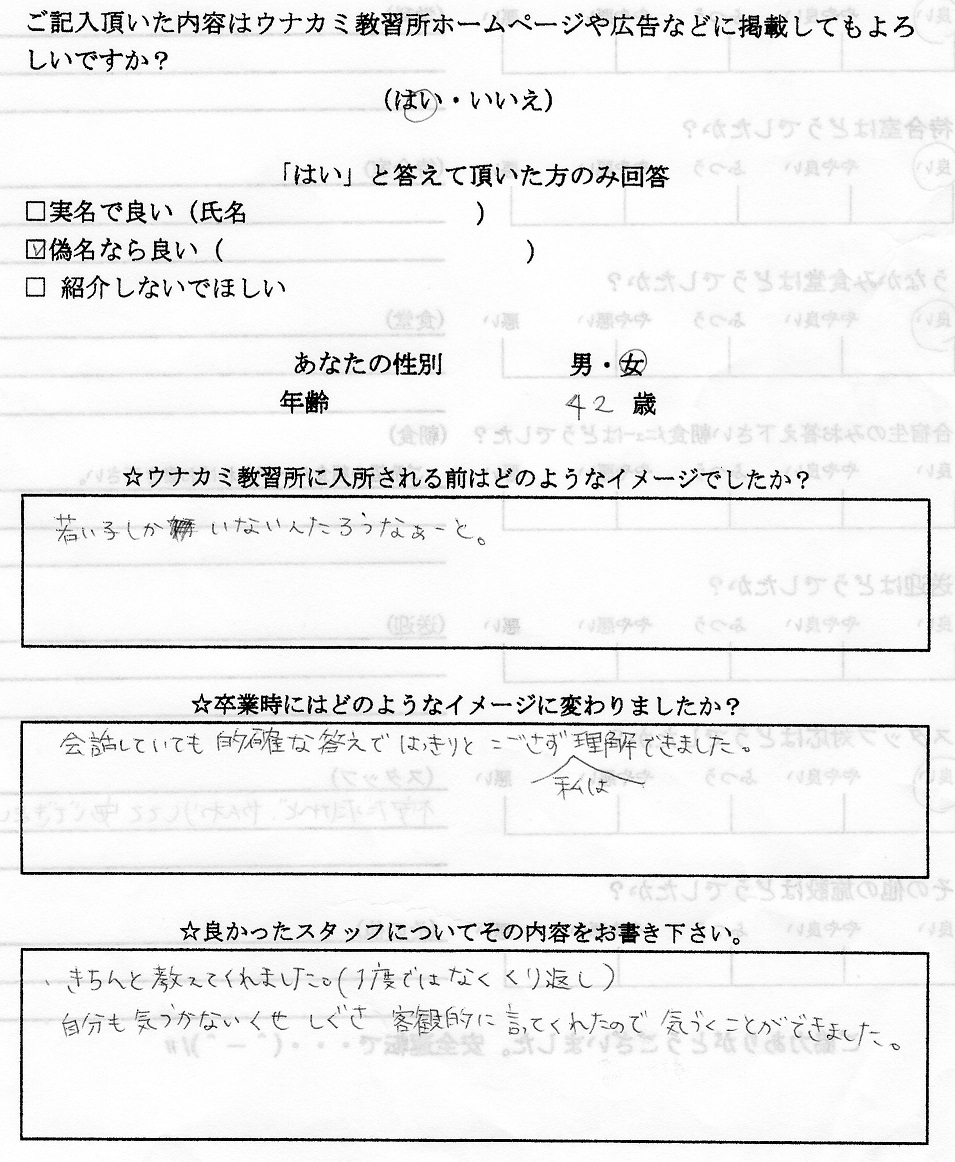 ご記入頂いた内容はウナカミ教習所ホームページや広告などに掲載してもよろ
しいですか？
（はい・いいえ）
「はい」と答えて頂いた方のみ回答
□実名で良い（氏名　　　　　　　　　）
☑偽名なら良い（　　　　　　　　　　　　）
□ 紹介しないでほしい
あなたの性別　　　　　男・女
年齢　　　　　　　　　42 歳
☆ウナカミ教習所に入所される前はどのようなイメージでしたか？
若い子しか いないんだろうなぁーと。
☆卒業時にはどのようなイメージに変わりましたか？
会話していても 的確な答えで はっきりと にごさず 理解できました。
私は
☆良かったスタッフについてその内容をお書き下さい。
・きちんと教えてくれました。(1度ではなく くり返し)
自分も気づかないくせ しぐさ 客観的に言ってくれたので 気づくことができました。